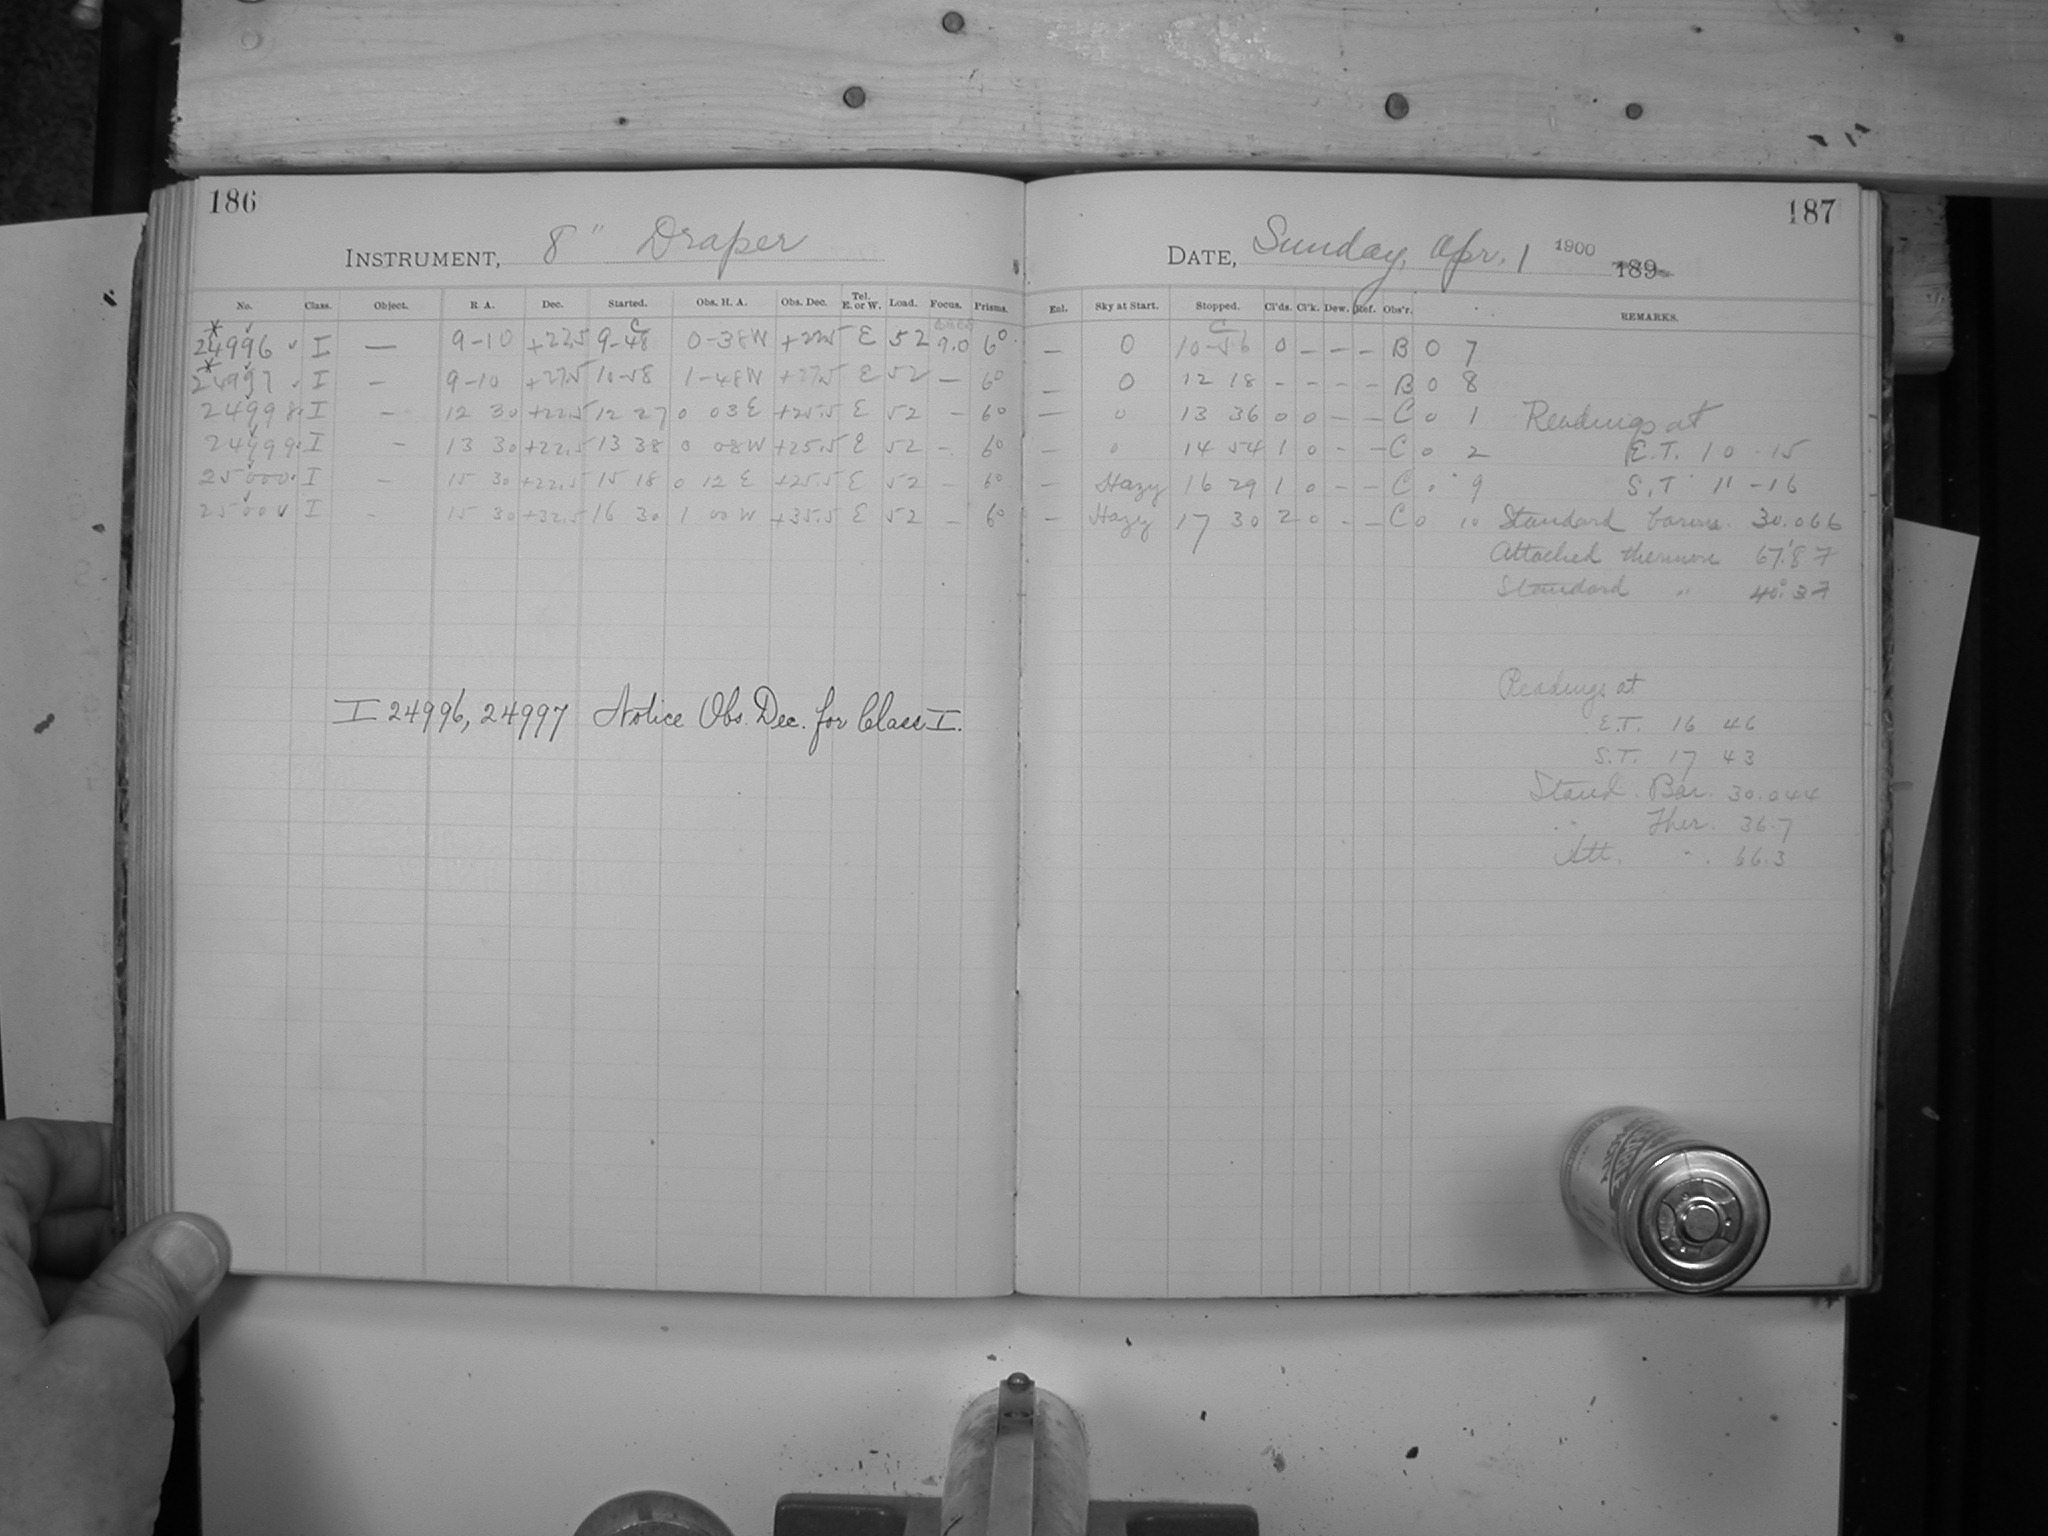 186
INSTRUMENT, 8" Draper
No. Class. Object. R A. Dec. Started. Obs. H. A. Obs. Dec. Tel. E. or W. Load. Focus. Prisms.
24996 I — 9-10 +22.5 9-48 0-38W +22.5 E 52 9.0 6°
24997 I — 9-10 +27.5 10-58 1-48W +27.5 E 52 — 6°
24998 I — 12 30 +22.5 12 27 0 03 E +25.5 E 52 — 6°
24999 I — 13 30 +22.5 13 38 0 08W +25.5 E 52 — 6°
25000 I — 15 30 +22.5 15 18 0 12 E +25.5 E 52 — 6°
25001 I — 15 30 +32.5 16 30 1 00 W +35.5 E 52 — 6°
I 24996, 24997 Notice Obs. Dec. for Class I.
187
DATE, Sunday, Apr. 1 1900 189
Enl. Sky at Start. Stopped. Cl'ds. Cl'k. Dew. Ref. Obs'r. REMARKS.
— 0 10-56 0 — — — B 0 7
— 0 12 18 - - - - B 0 8
— 0 13 36 0 0 — — C 0 1 Readings at
— 0 14 54 1 0 - - C 0 2 E.T. 10-15
— Hazy 16 29 1 0 - - C 0 9 S.T 11-16
— Hazy 17 30 2 0 - - C 0 10 Standard barom. 30.066
Attached thermom 67.°87
Standard " 40.°37
Readings at
E.T. 16 46
S.T. 17 43
Stand. Bar. 30.044
" Ther. 36.7
Att. " 66.3